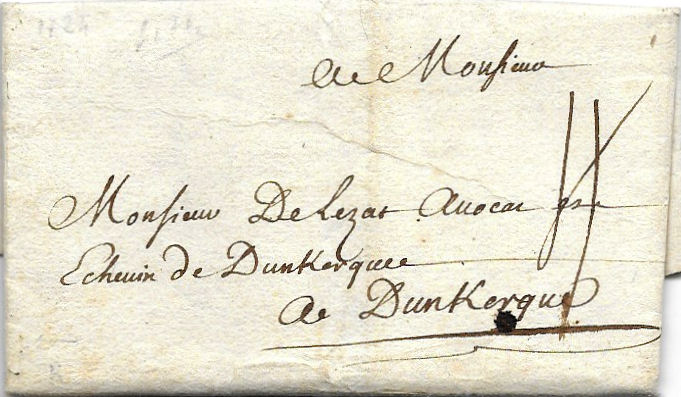 A Monsieur
Monsieur De Lezat Avocat et
Echevin de Dunkerque
A Dunkerque